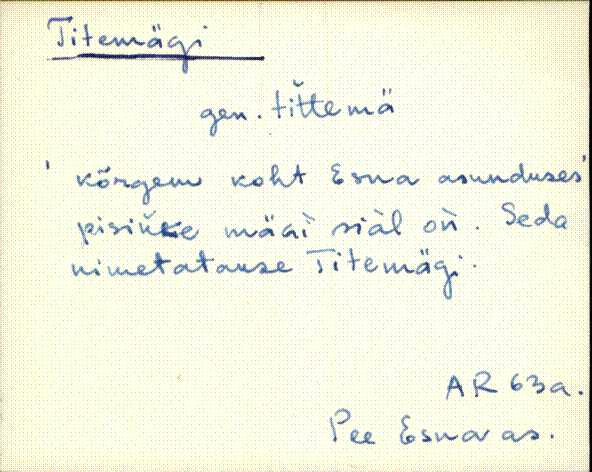 Titemägi
gen. tit̆temä
' kõrgem koht Esna asunduses'
pisiǹke mäǵì siàl oǹ. Seda
nimetatakse Titemägi.
AR 63a.
Pee Esna as.